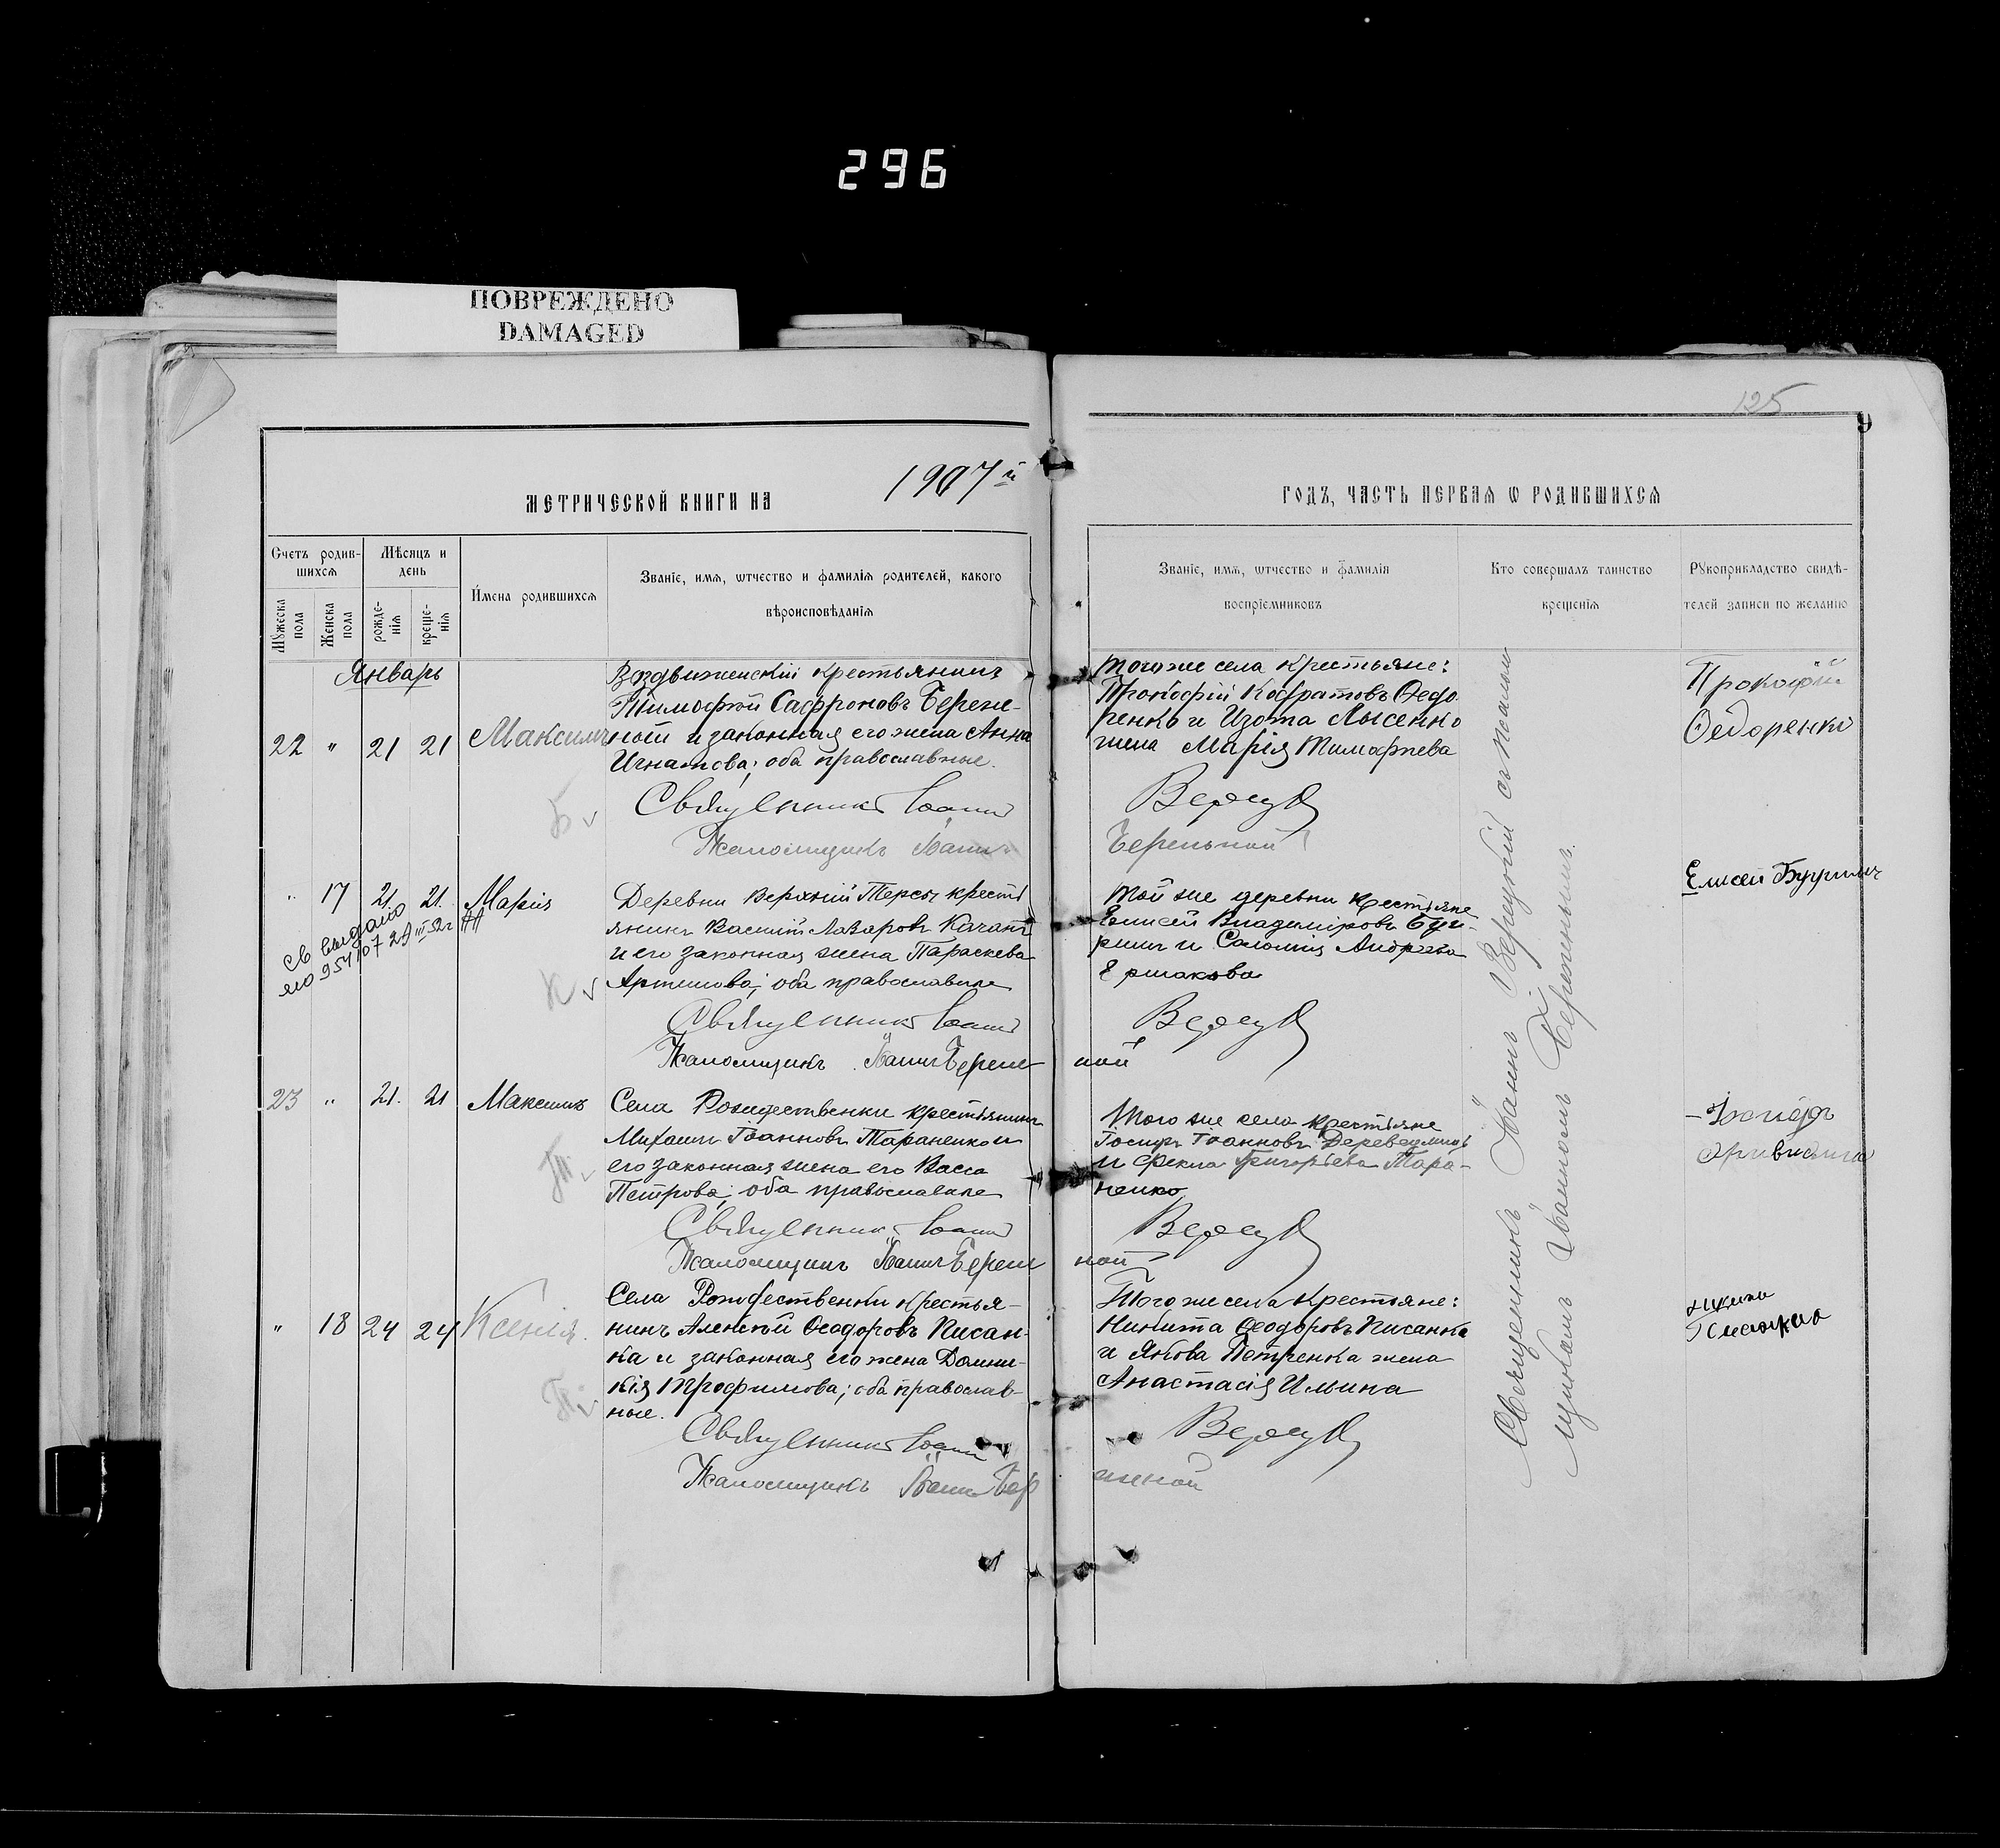 296
ПОВРЕЖДЕНО
DAMAGED
125
9
МЕТРИЧЕСКОЙ КНИГИ НА 1907й
ГОДЪ, ЧАСТЬ ПЕРВАѦ Ѡ РОДИВШИХСѦ
Счетъ родив-
шихсѧ
Мѣсяцъ и
день
Мꙋжеска
пола
Женска
пола
рожде-
нїѧ
креще-
нїѧ
Имена родившихсѧ
Званїе, имѧ, ѡтчество и фамилїѧ родителей, какого
вѣроисповѣданїѧ
Званїе, имѧ, ѡтчество и фамилїѧ
воспрїемниковъ
Кто совершалъ таинство
крещенїѧ
Рꙋкоприкладство свидѣ-
телей записи по желанїю
Январь
22 " 21 21 Максимъ
Воздвиженскій крестьянинъ
Тимофей Сафроновъ Береж-
ной и законная его жена Анна
Игнатова; оба православные.
Священникъ Іоаннъ
Псаломщикъ Іоаннъ
Того же села крестьяне:
Прокофій Федо-
ренко и Изота Лысенко
жена Марія Тимофеева
Бережной
Прокофій
Федоренко
" 17 21. 21. Марія
Св выдано
Деревни Верхній Терсы кресть
янинъ Василій Лазаровъ Качанъ
и его законная жена Параскева
Артемова; оба православные
Священникъ Іоаннъ
Псаломщикъ Іоаннъ Береж
ной
Той же деревни крестьяне
Елисей Владиміровъ
и Саломія Андреева
Ермакова
Елисей
23 " 21. 21 Максимъ
Села Рождественки крестьянинъ
Михаилъ Іоанновъ Тараненко и
его законная жена его Васса
Петрова; оба православные
Священникъ Іоаннъ
Псаломщикъ Іоаннъ Береж
ной
Того же села крестьяне
Іосифъ Іоанновъ
и Фекла Григорьева Тара-
ненко
" 18 24 24 Ксенія.
Села Рождественки крестья-
нинъ Алексѣй Ѳеодоровъ Писан-
ка и законная его жена Домни-
кія Трофимова; оба православ-
ные.
Священникъ Іоаннъ
Псаломщикъ Іоаннъ Бер
ежной
Того же села крестьяне:
Никита Ѳеодоровъ Писанка
и Якова Петренка жена
Анастасія Ильина
Никита
Священникъ Іоаннъ
Іоанномъ Бережнымъ.